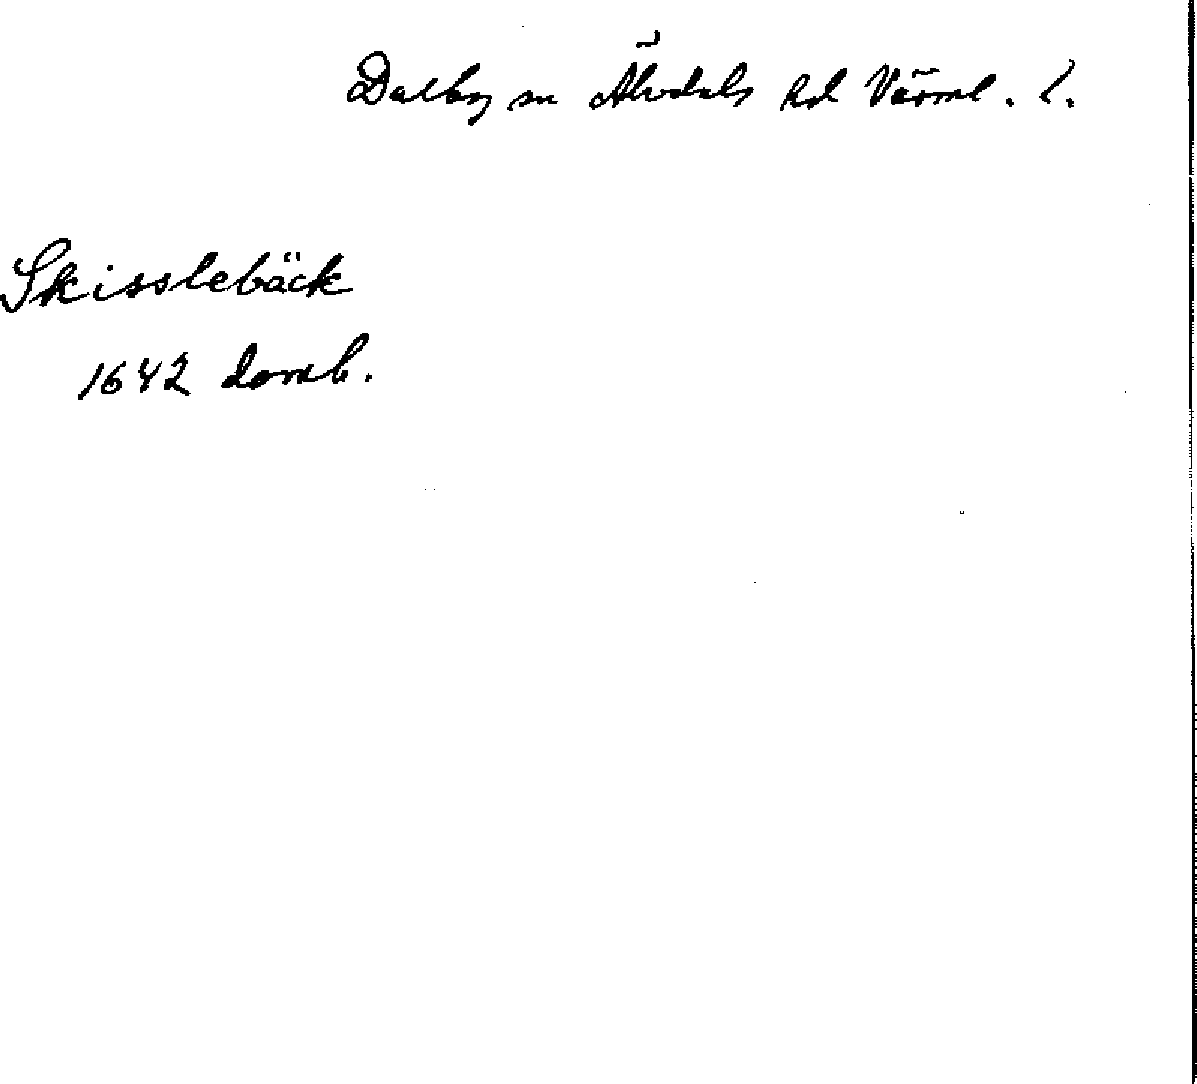 Dalby sn Älvdals hd Värml. l.
Skisslebäck
1642 domb.